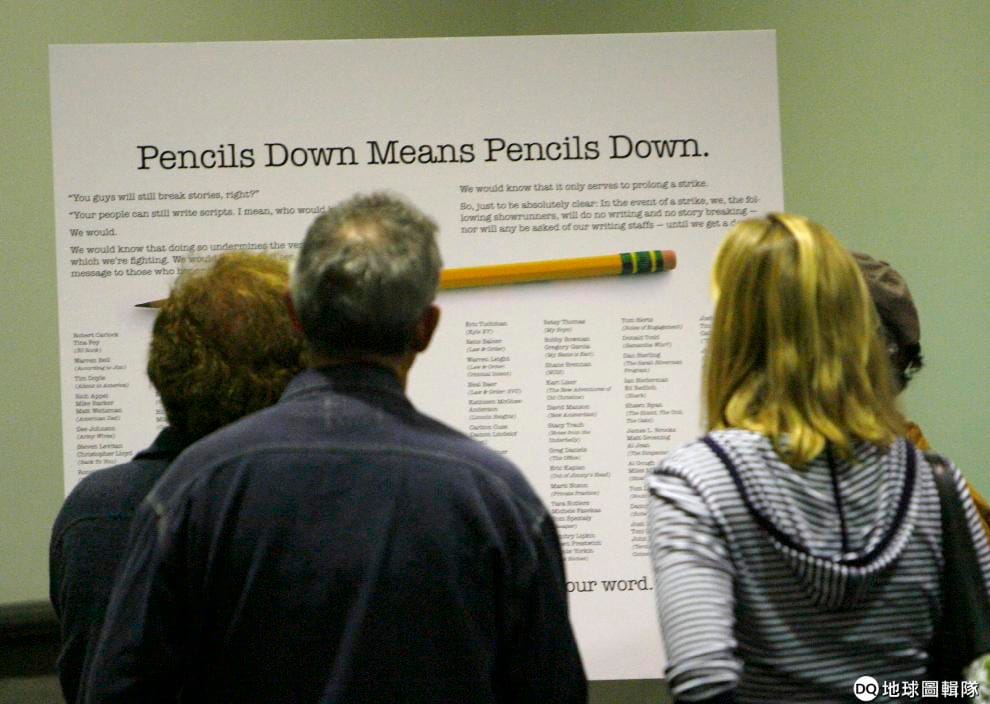 Pencils Down Means Pencils Down.
“You guys will still break stories, right?”
“Your people can still write scripts. I mean, who would
We would.
We would know that doing so undermines the
which we’re fighting. We
message to those who
We would know that it only serves to prolong a strike.
So, just to be absolutely clear: In the event of a strike, we, the fol-
lowing showrunners, will do no writing and no story breaking —
nor will any be asked of our writing staffs — until we get a
Robert Carlock
Tina Fey
(30 Rock)
Warren Bell
(According to Jim)
Tim Doyle
(Aliens in America)
Rich Appel
Mike Barker
Matt Weitzman
(American Dad)
Dee Johnson
(Army Wives)
Steven Levitan
Christopher Lloyd
(Back To You)
Eric Tuchman
(Kyle XY)
Rene Balcer
(Law & Order)
Warren Leight
(Law & Order:
Criminal Intent)
Neal Baer
(Law & Order: SVU)
Kathleen McGhee
Anderson
(Lincoln Heights)
Carlton Cuse
Damon Lindelof
Betsy Thomas
(My Boys)
Bobby Bowman
Gregory Garcia
(My Name is Earl)
Shane Brennan
(NCIS)
Kari Lizer
(The New Adventures of
Old Christine)
David Manson
(New Amsterdam)
Stacy Traub
(Notes from the
Underbelly)
Greg Daniels
(The Office)
Eric Kaplan
(Out of Jimmy’s Head)
Marti Noxon
(Private Practice)
Tara Butters
Michele Fazekas
Tom Spezialy
Tom Hertz
(Rules of Engagement)
Donald Todd
(Samantha Who?)
Dan Sterling
(The Sarah Silverman
Program)
Ian Biederman
Ed Redlich
(Shark)
Shawn Ryan
(The Shield, The Unit,
The Oaks)
James L. Brooks
Matt Groening
Al Jean
(The Simpsons)
Al Gough
our word.
DQ 地球圖輯隊